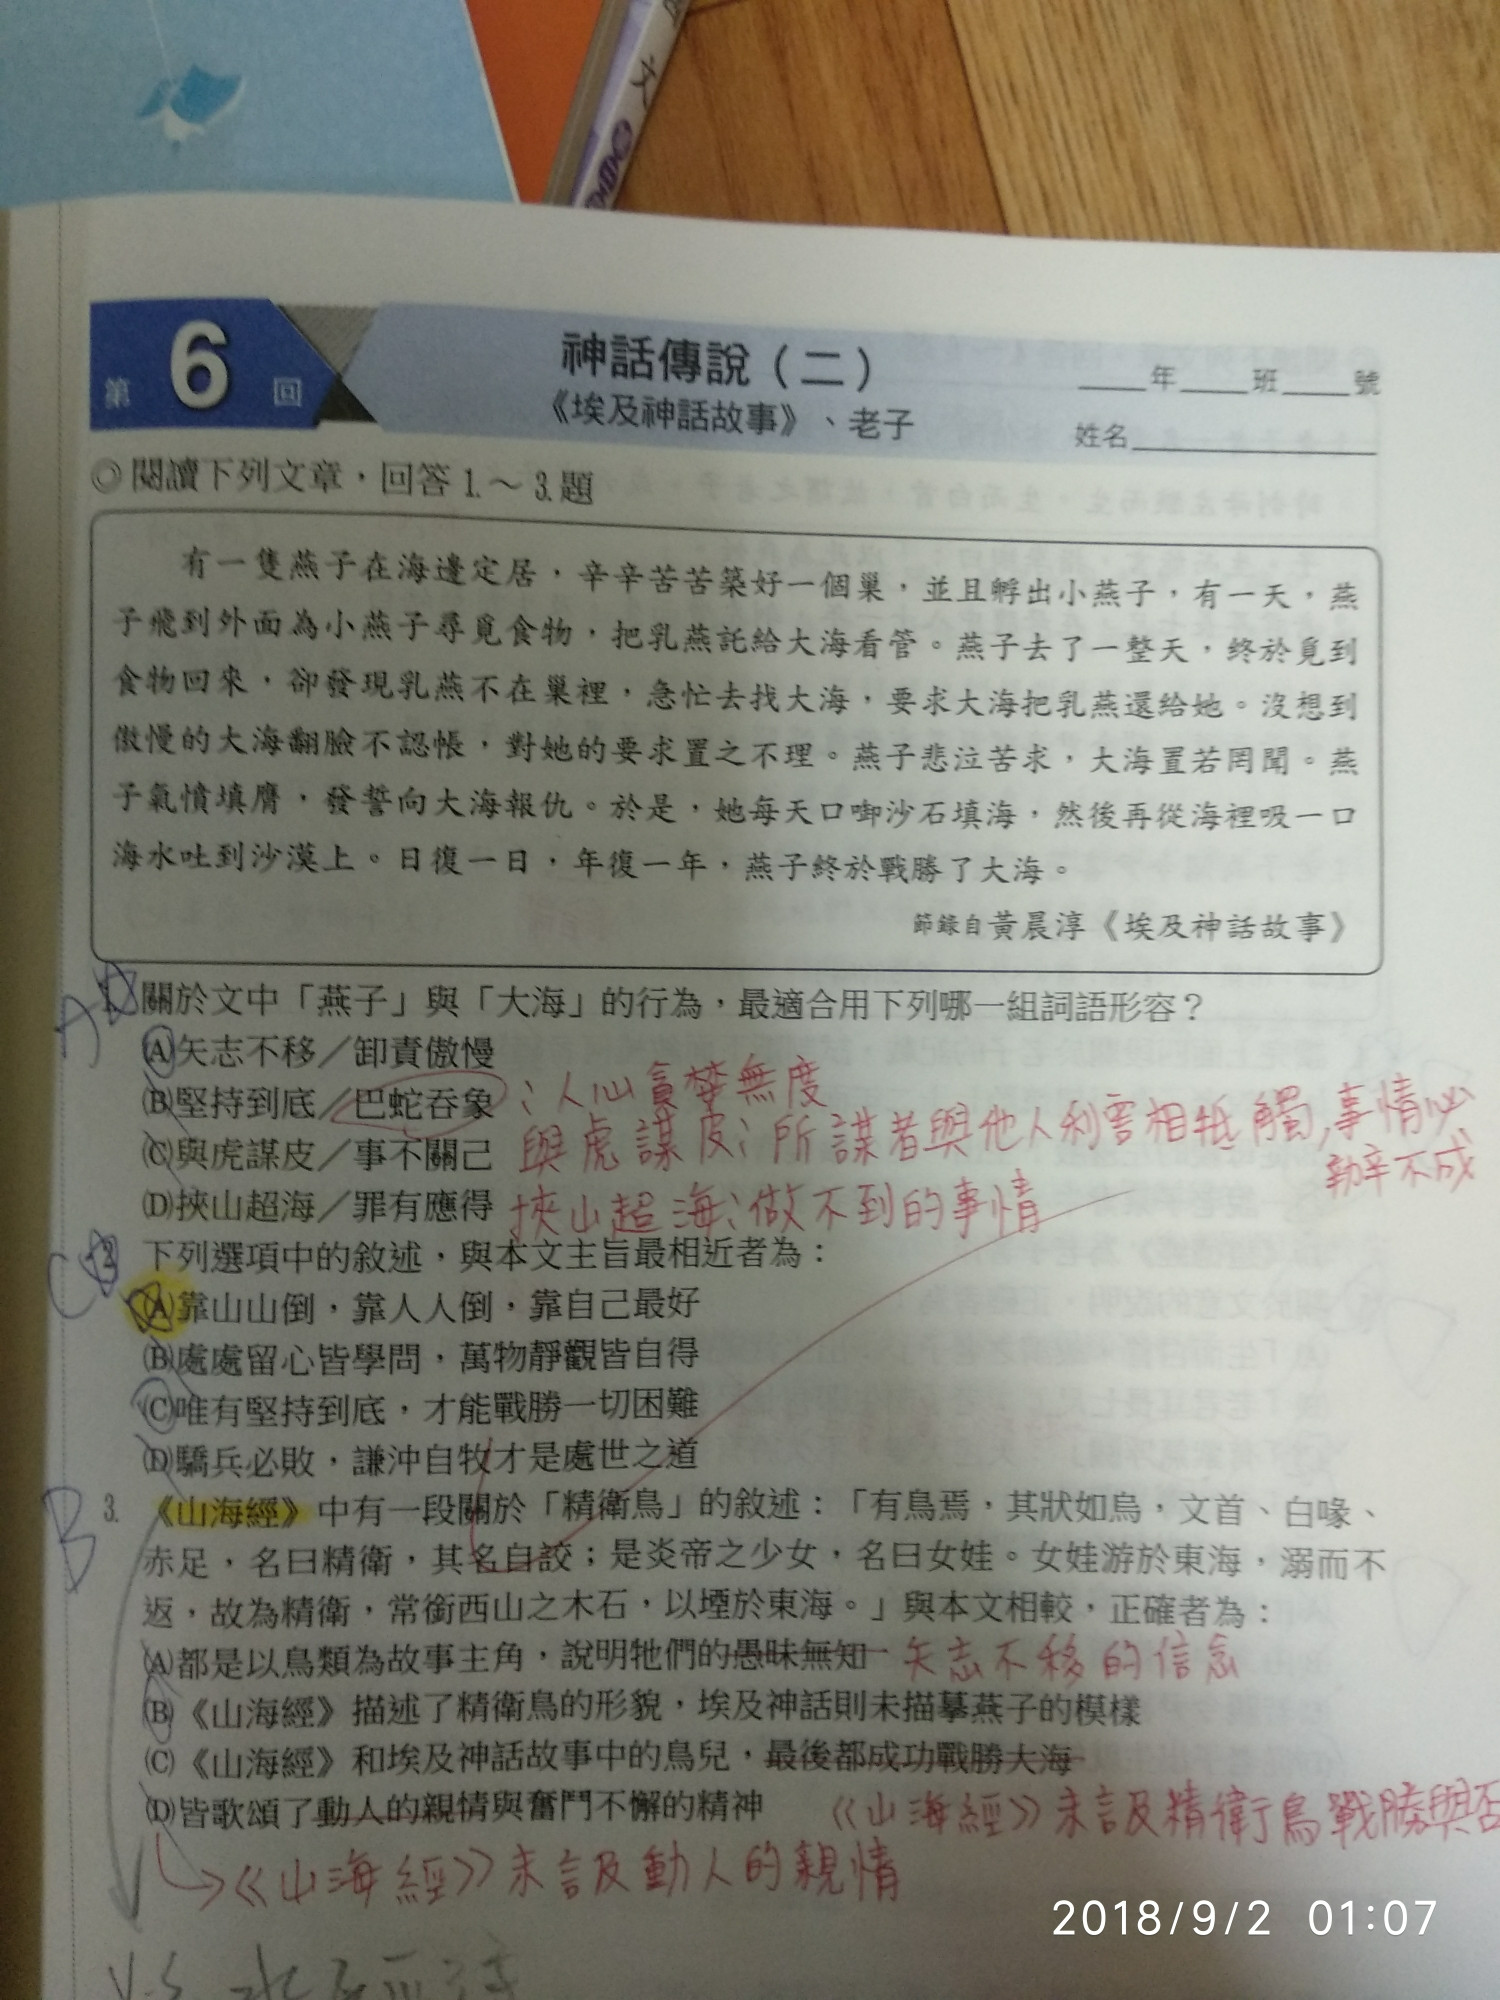 文
第 6 回
神話傳說（二）
《埃及神話故事》、老子
____年____班____號
姓名
◎閱讀下列文章，回答1.～3.題
有一隻燕子在海邊定居，辛辛苦苦築好一個巢，並且孵出小燕子，有一天，燕
子飛到外面為小燕子尋覓食物，把乳燕託給大海看管。燕子去了一整天，終於覓到
食物回來，卻發現乳燕不在巢裡，急忙去找大海，要求大海把乳燕還給她。沒想到
傲慢的大海翻臉不認帳，對她的要求置之不理。燕子悲泣苦求，大海置若罔聞。燕
子氣憤填膺，發誓向大海報仇。於是，她每天口啣沙石填海，然後再從海裡吸一口
海水吐到沙漠上。日復一日，年復一年，燕子終於戰勝了大海。
節錄自黃晨淳《埃及神話故事》
A 關於文中「燕子」與「大海」的行為，最適合用下列哪一組詞語形容？
(A)矢志不移／卸責傲慢
(B)堅持到底／巴蛇吞象：人心貪婪無度
(C)與虎謀皮／事不關己 與虎謀皮：所謀者與他人利害相牴觸，事情必
辦不成
(D)挾山超海／罪有應得 挾山超海：做不到的事情
C 下列選項中的敘述，與本文主旨最相近者為：
(A)靠山山倒，靠人人倒，靠自己最好
(B)處處留心皆學問，萬物靜觀皆自得
(C)唯有堅持到底，才能戰勝一切困難
(D)驕兵必敗，謙沖自牧才是處世之道
B 3. 《山海經》中有一段關於「精衛鳥」的敘述：「有鳥焉，其狀如烏，文首、白喙、
赤足，名曰精衛，其名自詨；是炎帝之少女，名曰女娃。女娃游於東海，溺而不
返，故為精衛，常銜西山之木石，以堙於東海。」與本文相較，正確者為：
(A)都是以鳥類為故事主角，說明牠們的愚昧無知 矢志不移的信念
(B)《山海經》描述了精衛鳥的形貌，埃及神話則未描摹燕子的模樣
(C)《山海經》和埃及神話故事中的鳥兒，最後都成功戰勝大海
(D)皆歌頌了動人的親情與奮鬥不懈的精神 《山海經》未言及精衛鳥戰勝與否
《山海經》未言及動人的親情
V.S. 水
2018/9/2 01:07